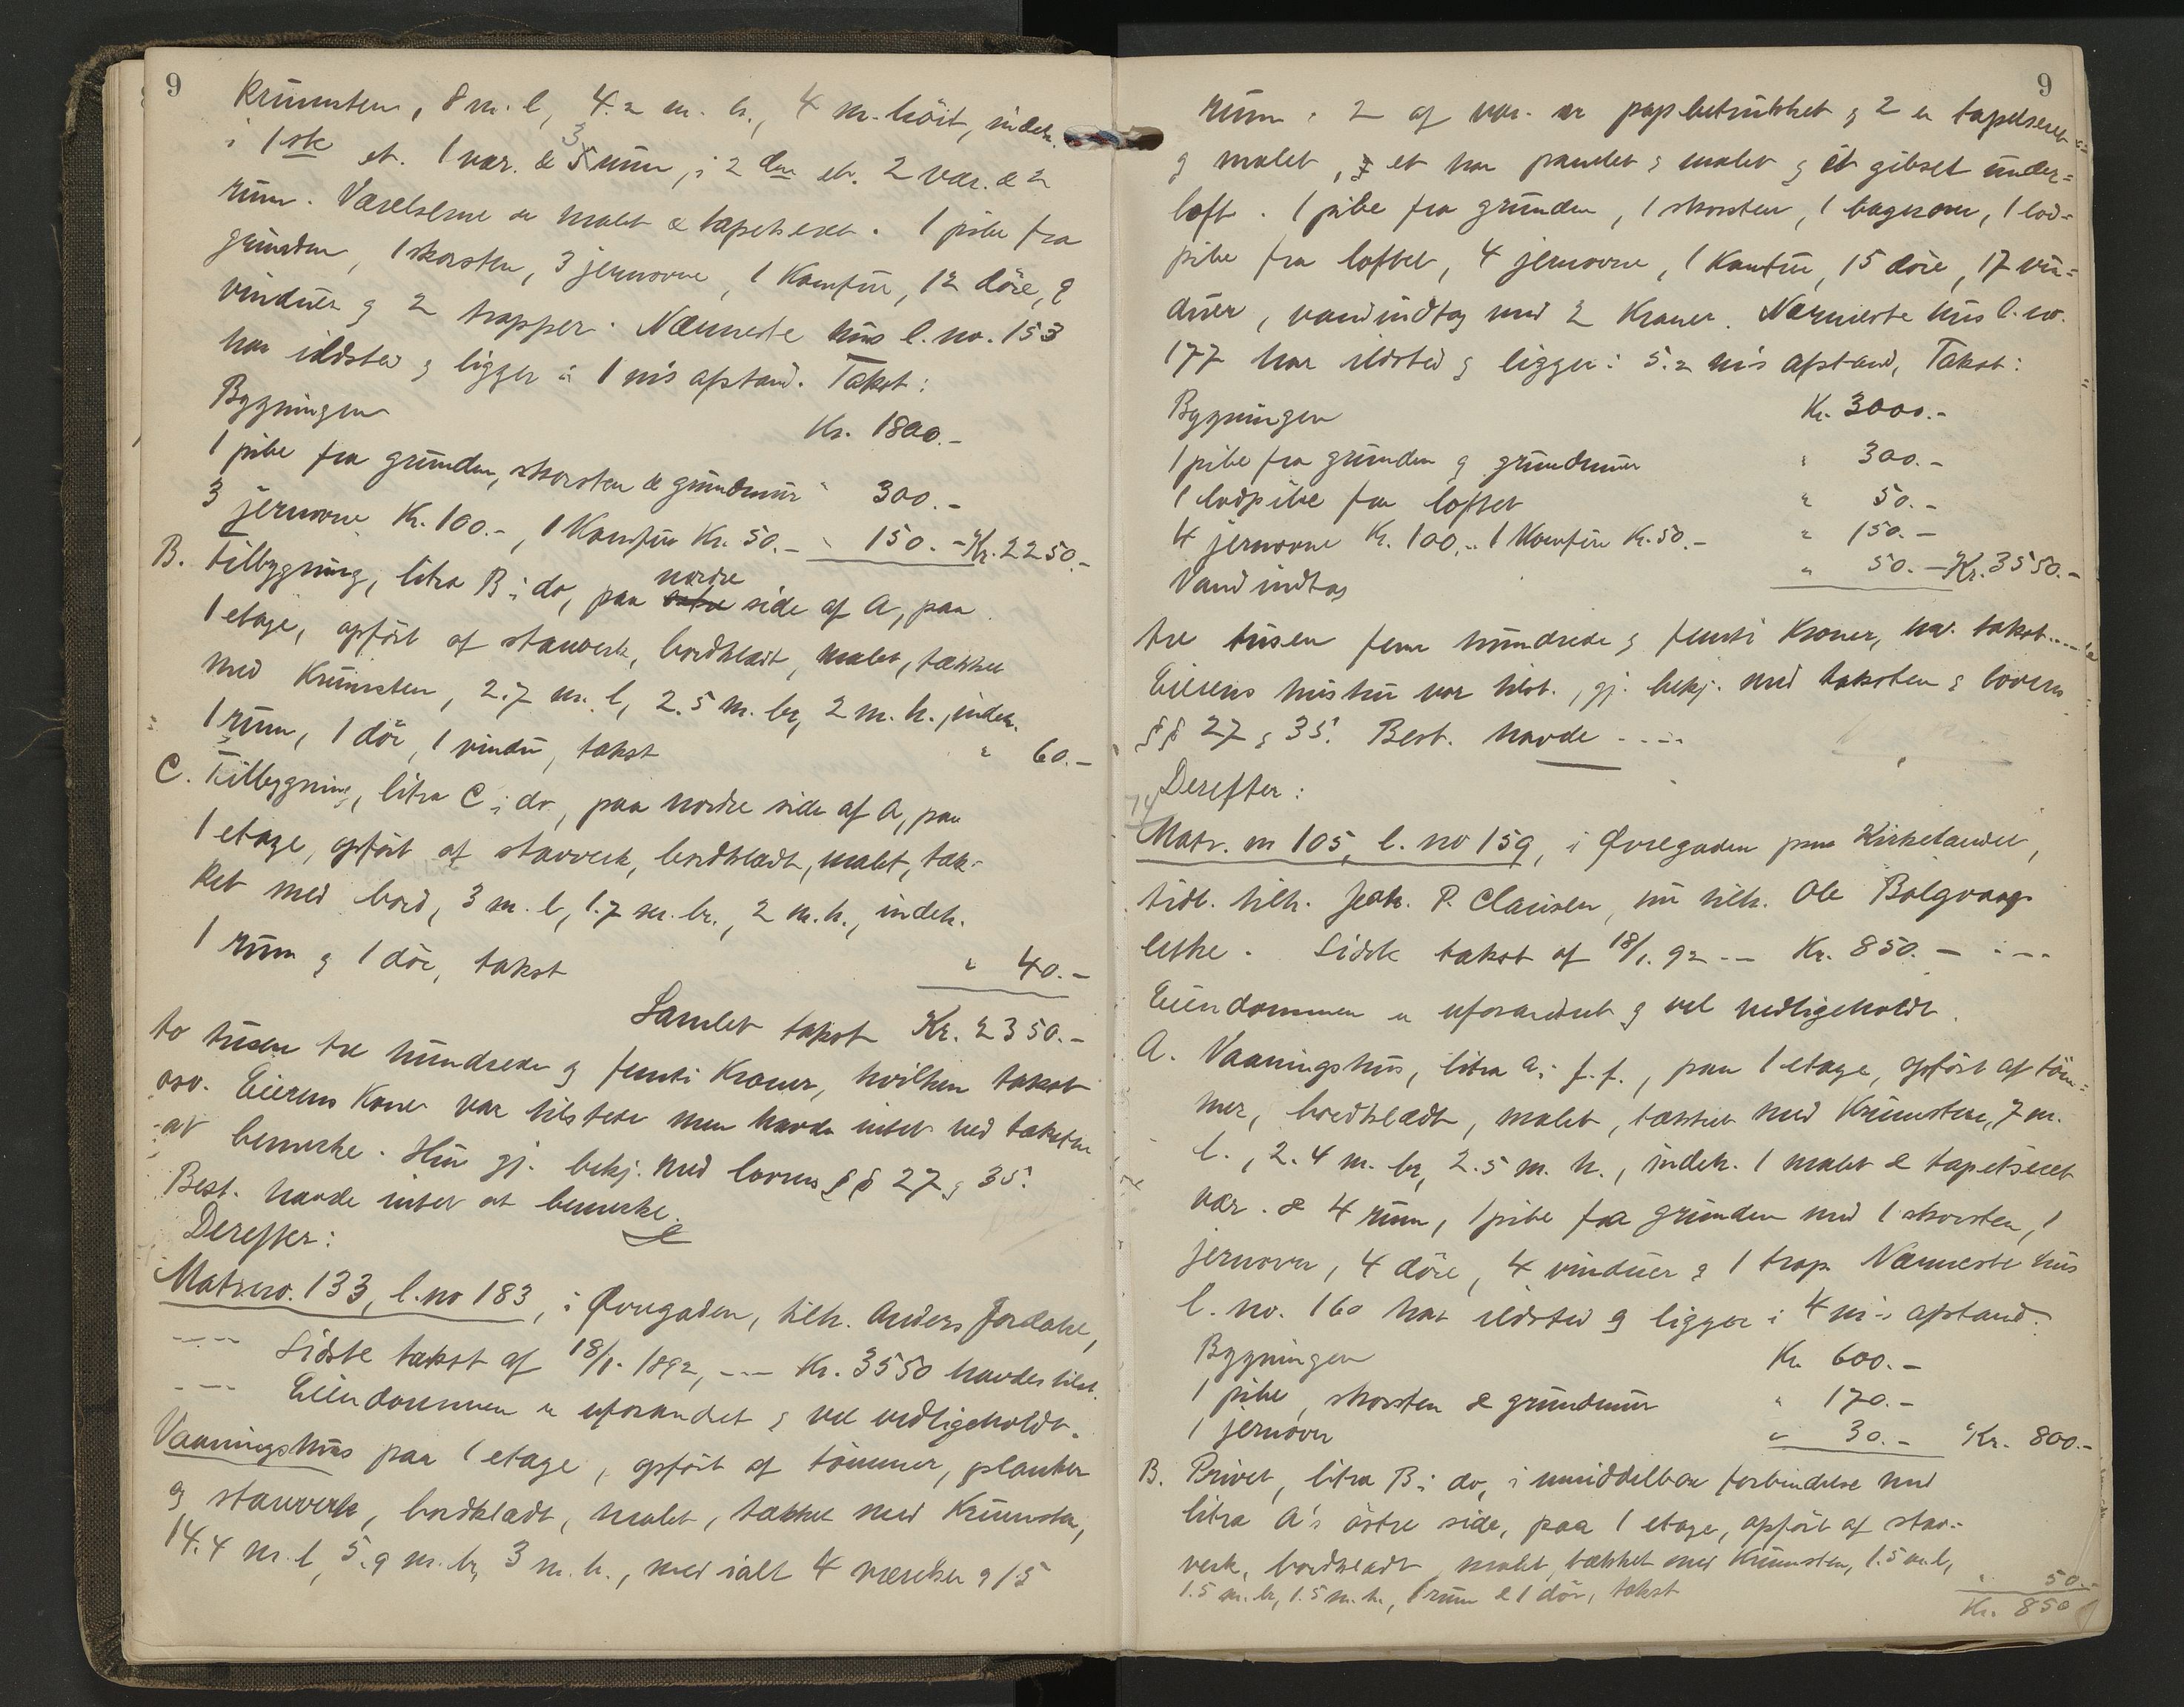 9
Krumsten, 8 m. l, 4.2 m. b., 4 m. höit, indeh.
i 1ste et. 1 vær. & 3 rum, i 2den et. 2 vær. & 2
rum. Værelserne er malet & tapetseret. 1 pibe fra
grunden, 1 skorsten, 3 jernovne, 1 Komfur, 12 döre, 9
vinduer og 2 trapper. Nærmeste hus l. no. 153
har ildsted og ligger i 1 m's afstand. Takst:
Bygningen Kr. 1800.-
1 pibe fra grunden, skorsten & grundmur " 300.-
3 jernovne Kr. 100.-, 1 Komfur Kr. 50.- " 150.- Kr. 2250.-
B. Tilbygning, litra B i do, paa nordre side af A, paa
1 etage, opfört af stavverk, bordklædt, malet, tækket
med Krumsten, 2.7 m. l, 2.5 m. br, 2 m. h., indeh.
1 rum, 1 dör, 1 vindu, takst " 60.-
C. Tilbygning, litra C i do, paa nordre side af A, paa
1 etage, opfört af stavverk, bordklædt, malet, tæk-
ket med bord, 3 m. l, 1.7 m. br., 2 m. h., indeh.
1 rum og 1 dör, takst " 40.-
Samlet takst Kr. 2350.-
to tusen tre hundrede og femti Kroner, hvilken takst
osv. Eierens Kone var tilstede men havde intet ved taksten
at bemerke. Hun gj. bekj. med lovens §§ 27 og 35.
Best. havde intet at bemerke.
Derefter:
Matr.no. 133, l. no 183, i Øvregaden, tilh. Anders Jordahl,
---- Sidste takst af 18/1. 1892, --- Kr. 3550 havdes tilst.
---- Eiendommen er uforandret og vel vedligeholdt.
Vaaningshus paa 1 etage, opfört af tömmer, planker
og stavverk, bordklædt, malet, tækket med Krumsten,
14.4 m. l, 5.9 m. br, 3 m. h., med ialt 4 værelser og 15
9
rum. 2 af vær. er papbetrukket og 2 er tapetseret
og malet, et har panelet og malet og et gibset under=
loft. 1 pibe fra grunden, 1 skorsten, 1 bagerovn, 1 lod=
pibe fra loftet, 4 jernovne, 1 Komfur, 15 döre, 17 vin=
duer, vandindtag med 2 Kraner. Nærmeste hus l. no.
177 har ildsted og ligger i 5.2 m's afstand, Takst:
Bygningen Kr. 3000.-
1 pibe fra grunden og grundmur " 300.-
1 lodpibe fra loftet " 50.-
4 jernovne Kr. 100.- 1 Komfur Kr. 50.- " 150.-
Vandindtag " 50.- Kr. 3550.-
tre tusen fem hundrede og femti Kroner, hv. takst....
Eierens hustru var tilst., gj. bekj. med taksten og lovens
§§ 27 og 35. Best. havde ----
Derefter:
74
Matr. no 105, l. no 159, i Øvregaden paa Kirkelandet,
tidl. tilh. P. Clausen, nu tilh. Ole Bolgvaags
enke. Sidste takst af 18/1. 92 --- Kr. 850.- ---
Eiendommen er uforandret og vel vedligeholdt.
A. Vaaningshus, litra A i f. f., paa 1 etage, opfört af töm=
mer, bordklædt, malet, tækket med Krumsten, 7 m.
l., 2.4 m. br, 2.5 m. h., indeh. 1 malet & tapetseret
vær. & 4 rum, 1 pibe fra grunden med 1 skorsten, 1
jernovn, 4 döre, 4 vinduer og 1 trap. Nærmeste hus
l. no. 160 har ildsted og ligger i 4 m's afstand.
Bygningen Kr. 600.-
1 pibe, skorsten & grundmur " 170.-
1 jernovn " 30.- Kr. 800.-
B. Privet, litra B i do, i umiddelbar forbindelse med
litra A's östre side, paa 1 etage, opfört af stav-
verk, bordklædt, malet, tækket med Krumsten, 1.5 m. l,
1.5 m. br, 1.5 m. h., 1 rum & 1 dör, takst " 50.-
Kr. 850